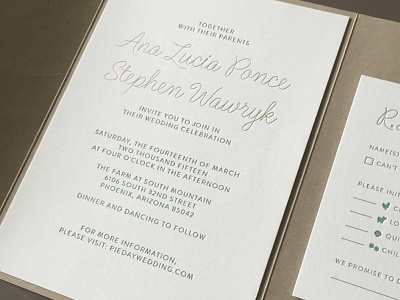 TOGETHER
WITH THEIR PARENTS
Ana Lucia Ponce
Stephen Wawryk
INVITE YOU TO JOIN IN
THEIR WEDDING CELEBRATION
SATURDAY, THE FOURTEENTH OF MARCH
TWO THOUSAND FIFTEEN
AT FOUR O'CLOCK IN THE AFTERNOON
THE FARM AT SOUTH MOUNTAIN
6106 SOUTH 32ND STREET
PHOENIX, ARIZONA 85042
DINNER AND DANCING TO FOLLOW
FOR MORE INFORMATION,
PLEASE VISIT: PIEDAYWEDDING.COM
NAME(S)
CAN'T
PLEASE INIT
C
LO
QUI
CHIL
WE PROMISE TO D